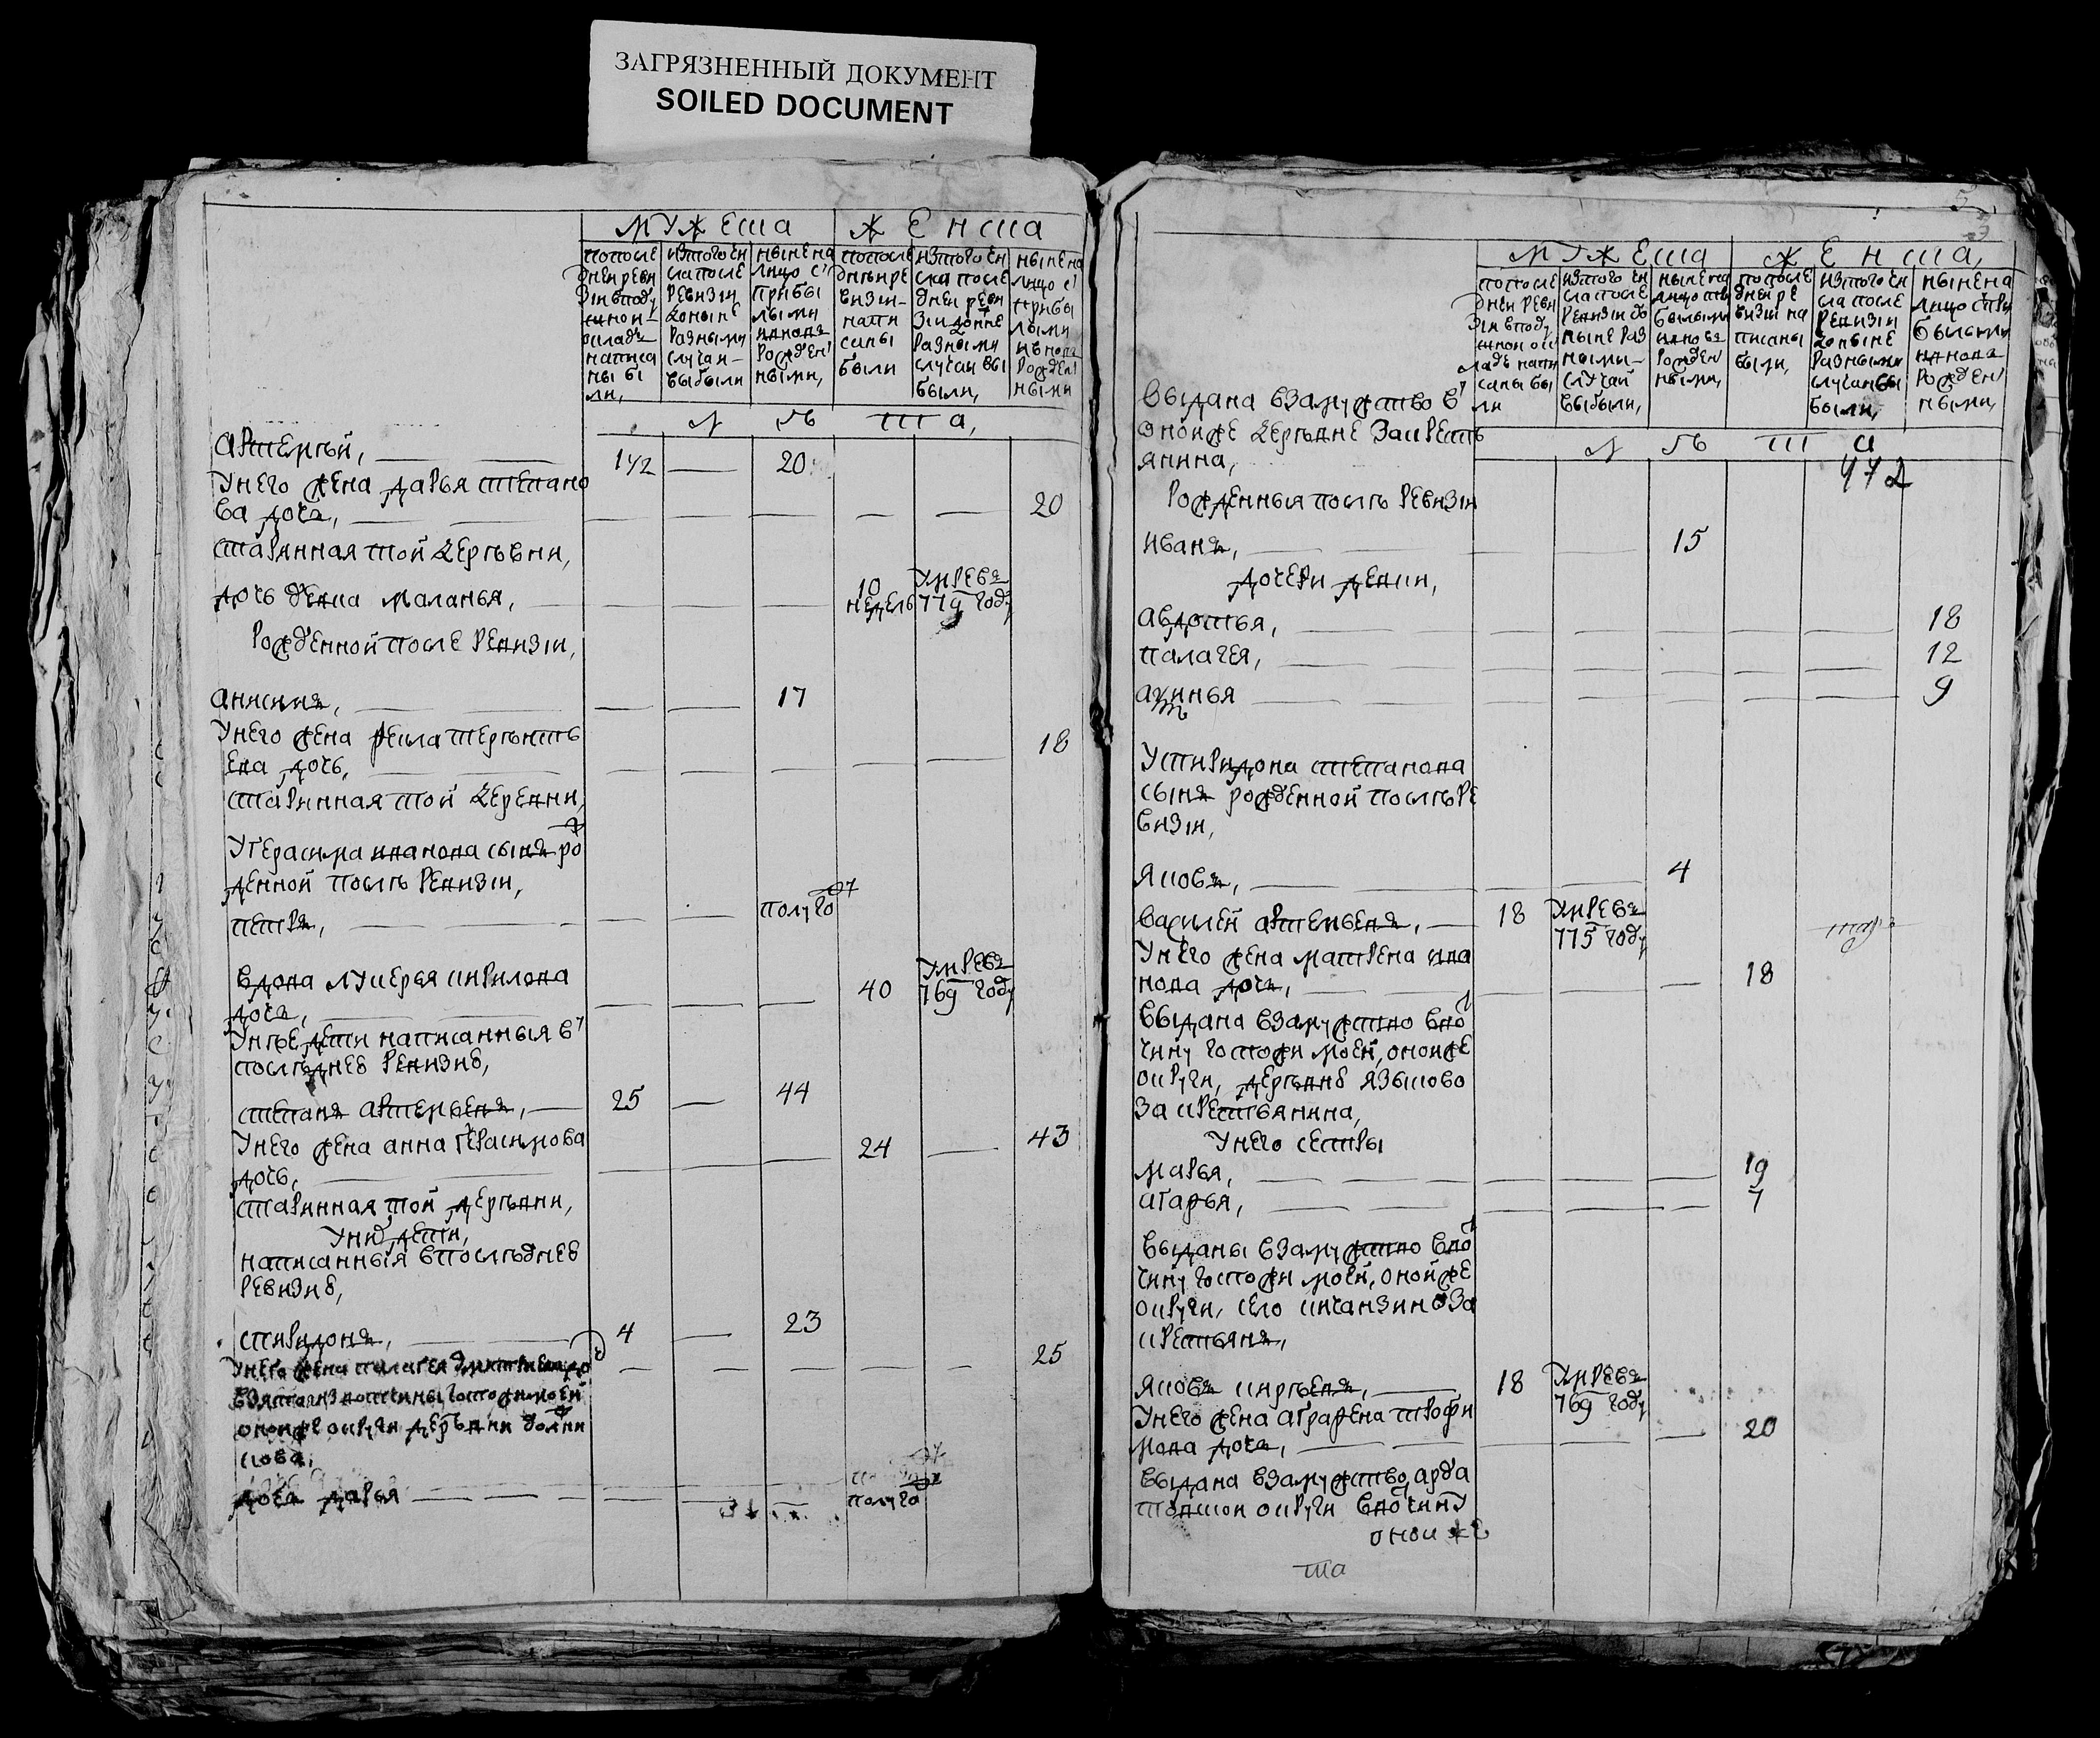 ЗАГРЯЗНЕННЫЙ ДОКУМЕНТ
SOILED DOCUMENT
МУЖЕска
ЖЕНска
попосле
дней реви
зіи вподу
шной
окладъ
написа
ны бы
ли,
изтого чи
сла после
ревизіи
доныне
разными
случаи
выбыли
ныне на
лицо с
прибы
лыми
ивновь
рожден
ными,
попосле
дней ре
визіи
напи
саны
были
изтого чи
сла после
дней реви
зіи доныне
разными
случаи вы
были,
ныне на
лицо с
прибы
лыми
ивновь
рожден
ными
Л Ѣ Т а,
артемей, 1/2 20
Унего жена дарья степано
ва дочь, 20
старинная той деревни,
дочь девка маланья, 10 недель умре въ 779 году
рожденной после ревизіи,
анисимъ, 17
Унего жена фекла терентье
ева дочь, 18
старинная той деревни,
Угерасима иванова сына рож
денной послѣ ревизіи,
петръ, полуго
вдова лукерья кирилова
дочь, 40 умре въ 769 году
Унѣе дети написанныя в
последней ревизіи,
степанъ артемьевъ, 25 44
Унего жена анна герасимова
дочь, 24 43
старинная той деревни,
Уних дети,
написанныя впоследней
ревизіи,
спиридонъ, 4 23
Унего жена палагея 25
взята из вотчины госпожи моей
оной же округи деревни
дочь дарья полуго
5
МУЖЕска
ЖЕНска,
попосле
дней реви
зіи вподу
шной ок
ладъ напи
саны бы
ли
изтого чи
сла после
ревизіи до
ныне раз
ными
случаи
выбыли,
ныне на
лицо при
былыми
ивновь
рожден
ными,
попосле
дней ре
визіи на
писаны
были,
изтого чи
сла после
ревизіи
доныне
разными
случаи вы
были,
ныне на
лицо спри
былыми
ивновь
рожден
ными,
Л Ѣ Т а
выдана взамужство в
оной же деревне за кресть
янина,
рожденныя послѣ ревизіи
иванъ, 15
дочери девки,
авдотья, 18
палагея, 12
акинья 9
Успиридона степанова
сынъ рожденной послѣ ре
визіи,
яковъ, 4
василей артемьевъ, 18 умре въ 775 году
Унего жена матрена ива
нова дочь, 18
выдана взамужство вво
чину госпожи моей, оной же
округи, деревне языково
за крестьянина,
Унего сестры
марья, 19
агафья, 7
выданы взамужство вво
чину госпожи моей, оной же
округи, село кичанзино за
крестьянъ,
яковъ киреевъ, 18 умре въ 769 году
Унего жена аграфена трофи
мова дочь, 20
выдана взамужство, арда
товской округи ввочину
оной же